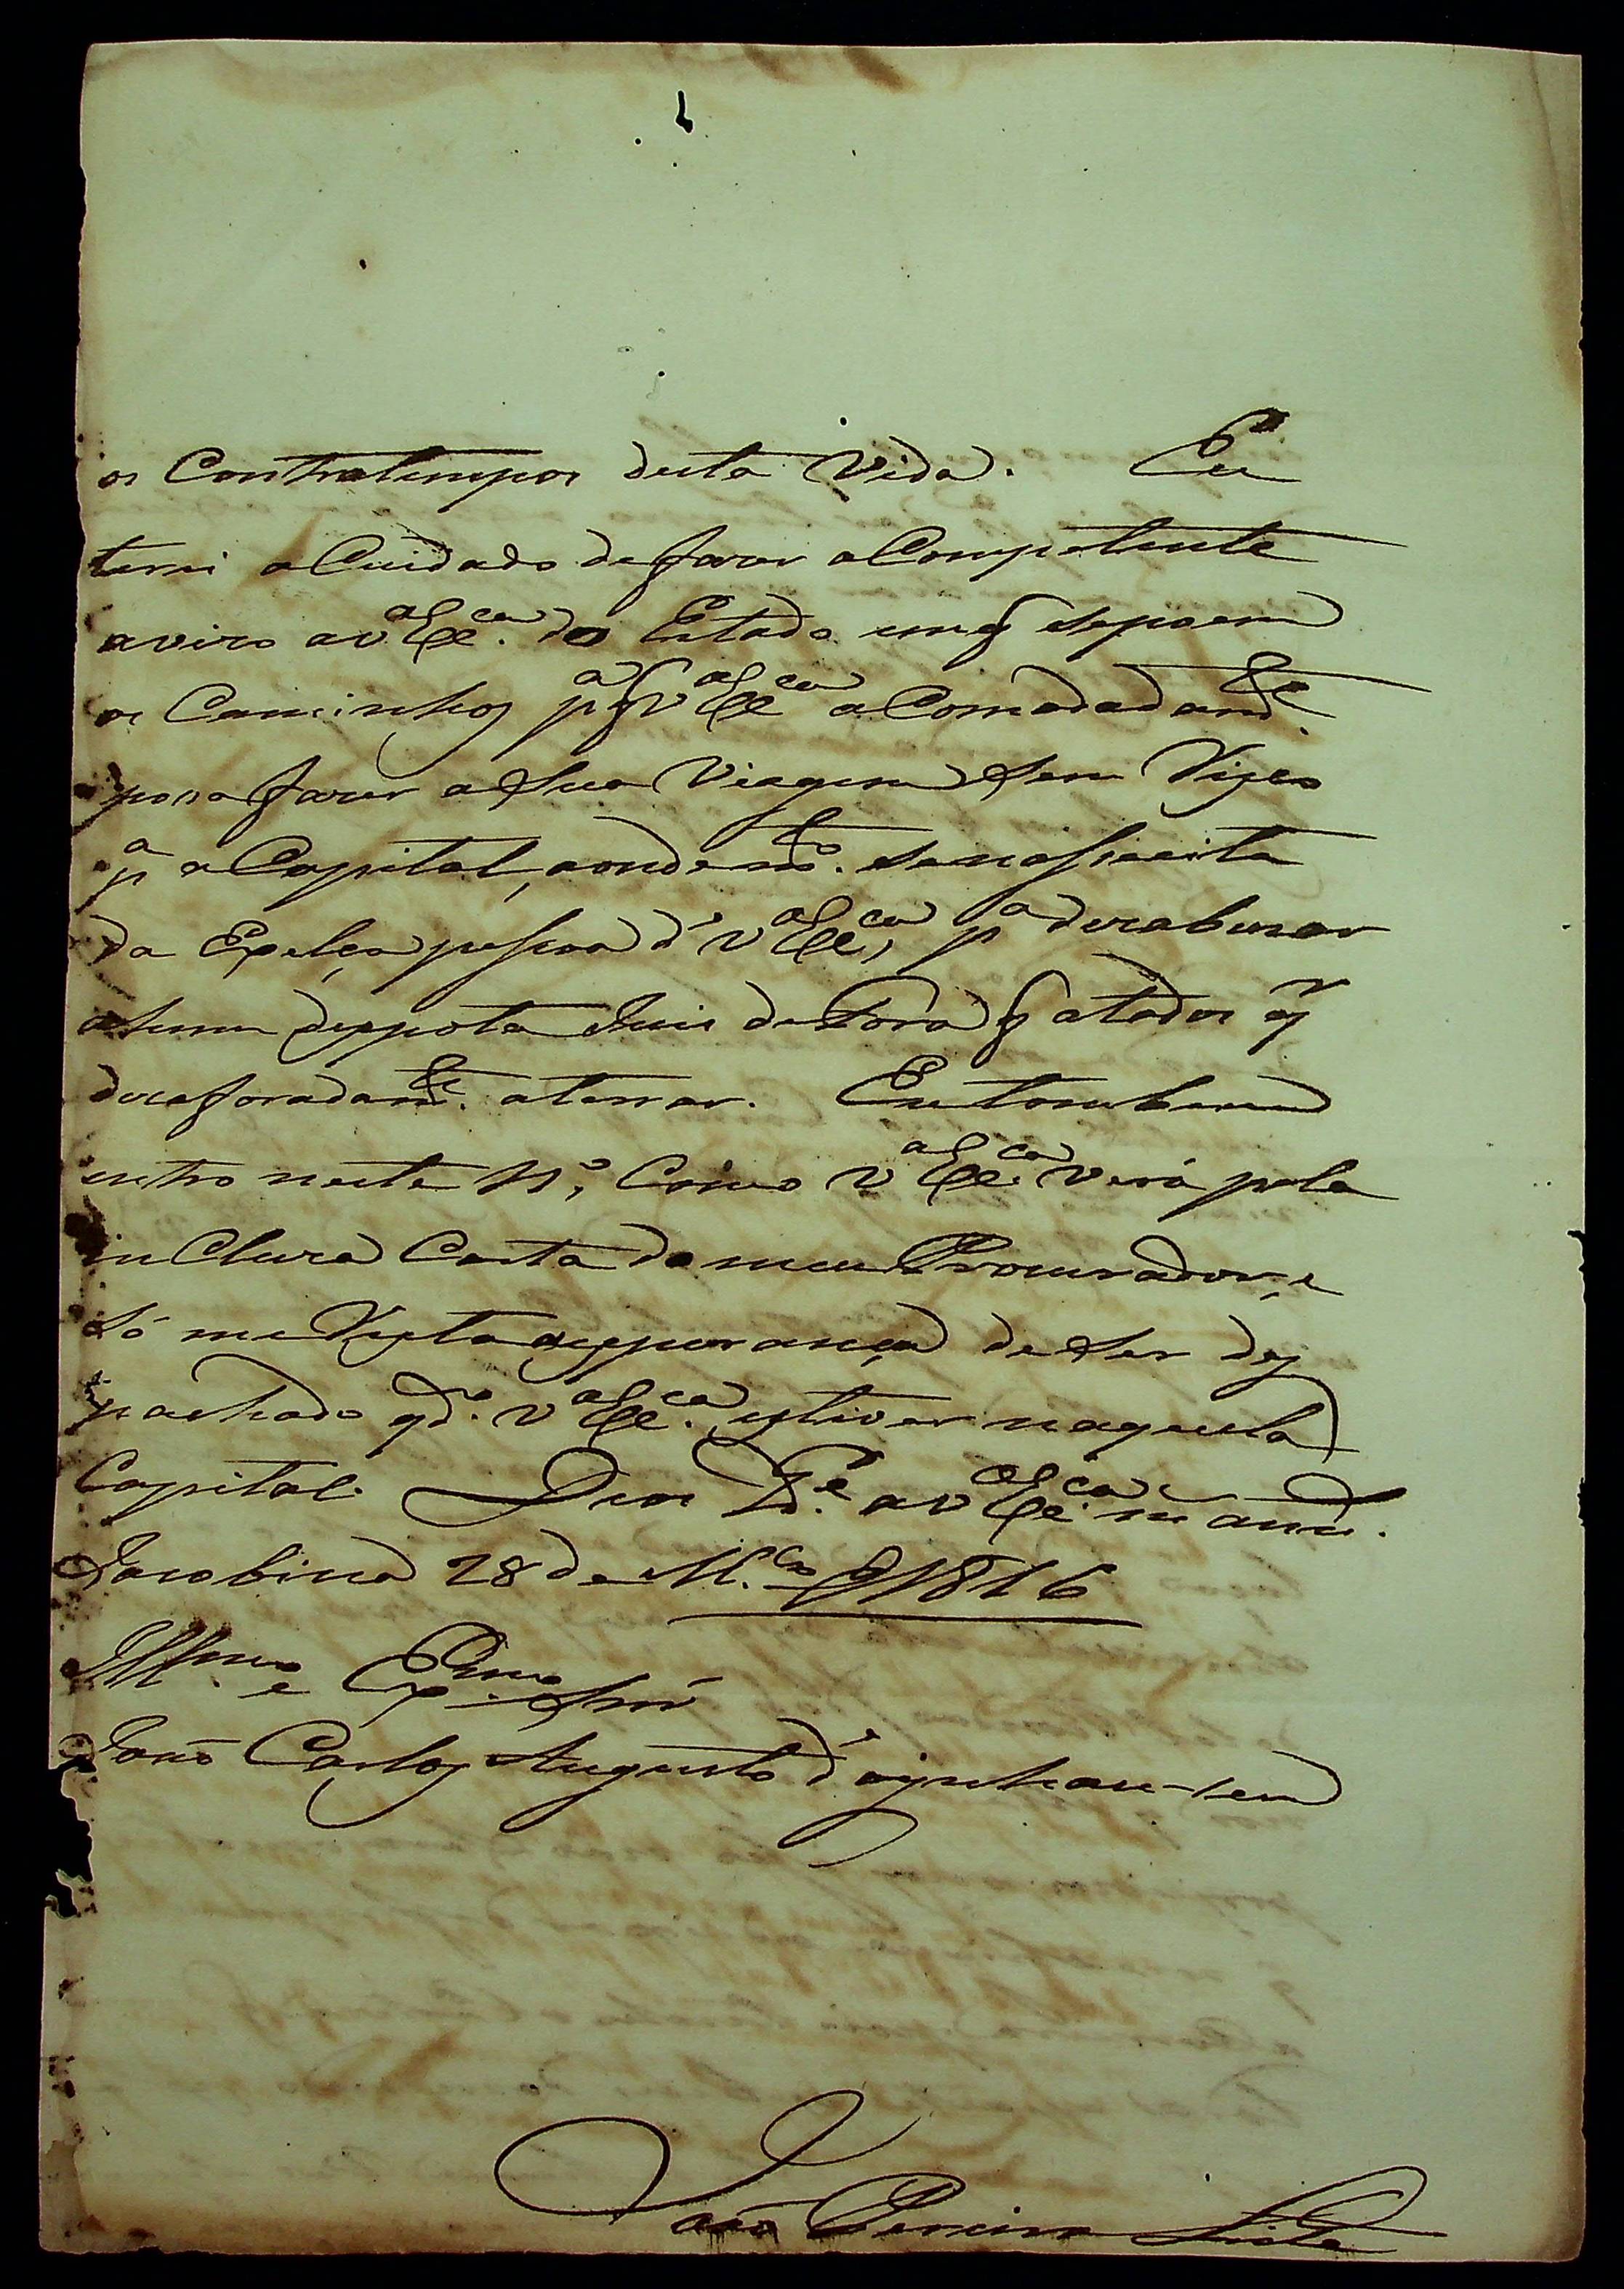 os Contratempos desta Vida. Eu
terei o Cuidado de fazer o Competente
avizo a V.ª Ex.ca do Estado em q se poem
os Caminhos p.ª q V.ª Ex.ca a Comodadam.te
possa fazer a Sua Viagem Sem Vizco
p.ª a Capital, aonde m.to se nasseçita
da Expelça pessoa d' V.ª Ex.ca, p.ª dezabuzar
a hum despota Juis de Fora q a todos q.r
dezaforadam.te aterrar. Eu tombem
entro neste N.º, Cômo V.ª Ex.ca verá pela
inCluza Carta do meu Procurador, e
Só me Resta a esperança de Ser des
pachado qd.º V.ª Ex.ca estiver naquela
Capital. Deos G.e a V.ª Ex.ca m. ann.
Jacobina 28 de M.ço d 1816
Ill.mo e Ex.mo Snr̃
João Carlos Augusto d' Oÿnhau-sem
João Pereira Leite